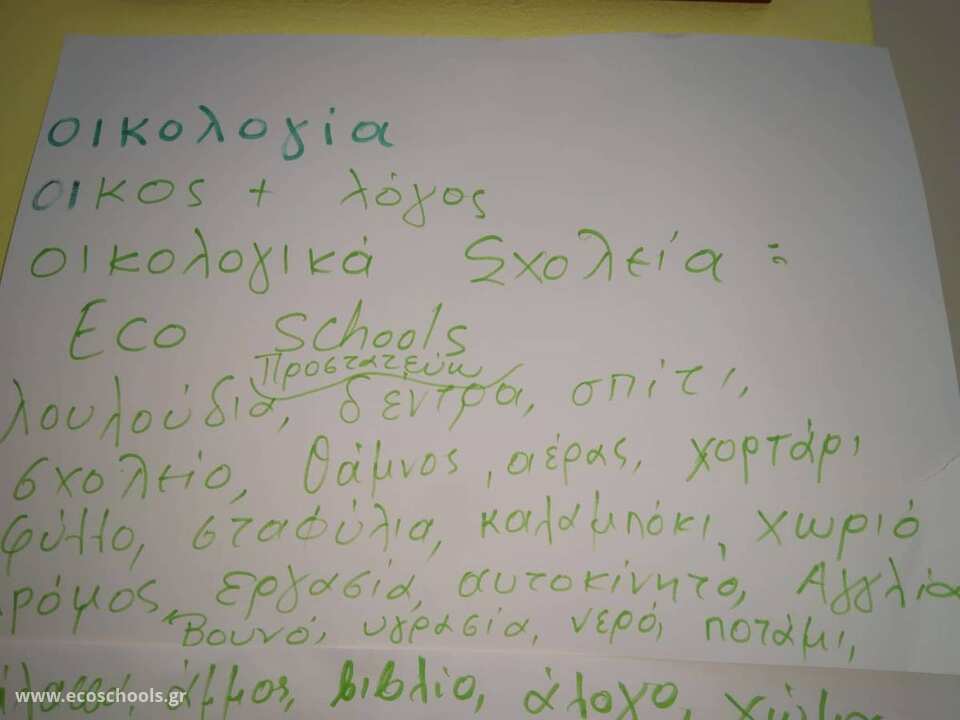 οικολογία
οικος + λόγος
οικολογικά Σχολεία :
Eco Schools
Προστατεύω
λουλούδια, δέντρα, σπίτι,
σχολείο, θάμνος, αέρας, χορτάρι
φύλλο, σταφύλια, καλαμπόκι, χωριό
ρόμος, εργασία, αυτοκίνητο, Αγγλία
Βουνό, υγρασία, νερό, ποτάμι,
άμμος, βιβλίο, άλογο,
www.ecoschools.gr